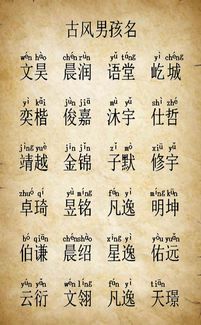 古风男孩名
wén hào chén rùn yǔ táng yì chéng
文昊 晨润 语堂 屹城
yì kǎi jùn jiā mù yǔ shì zhé
奕楷 俊嘉 沐宇 仕哲
jìng yuè jīn jǐn zǐ mò xiū yǔ
靖越 金锦 子默 修宇
zhuó qí yù míng fán yì míng kūn
卓琦 昱铭 凡逸 明坤
bó qiān chén shào xīng yì yòu yuǎn
伯谦 晨绍 星逸 佑远
yún yǎn wén líng fán yì tiān jǐng
云衍 文翎 凡逸 天璟